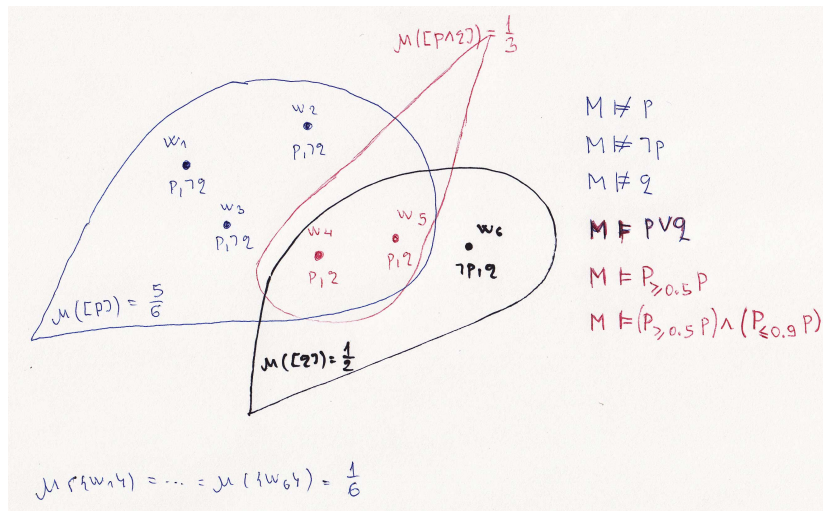 μ([p∧q]) = 1/3
w₂
p,¬q
w₁
p,¬q
w₃
p,¬q
w₄
p,q
w₅
p,q
w₆
¬p,q
μ([p]) = 5/6
μ([q]) = 1/2
M ⊭ p
M ⊭ ¬p
M ⊭ q
M ⊨ p∨q
M ⊨ P≥0.5 p
M ⊨ (P≥0.5 p) ∧ (P≤0.9 p)
μ({w₁}) = ... = μ({w₆}) = 1/6